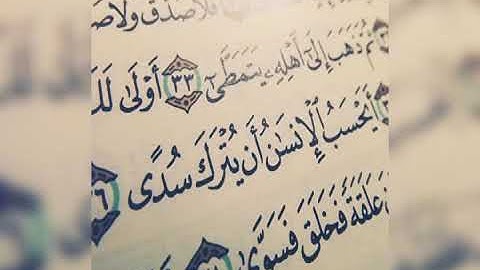 صَدَّقَ وَلَا
ثُمَّ ذَهَبَ إِلَىٰٓ أَهْلِهِۦ يَتَمَطَّىٰٓ ٣٣ أَوْلَىٰ لَكَ
أَيَحْسَبُ ٱلْإِنسَٰنُ أَن يُتْرَكَ سُدًى ٣٦
عَلَقَةً فَخَلَقَ فَسَوَّىٰ